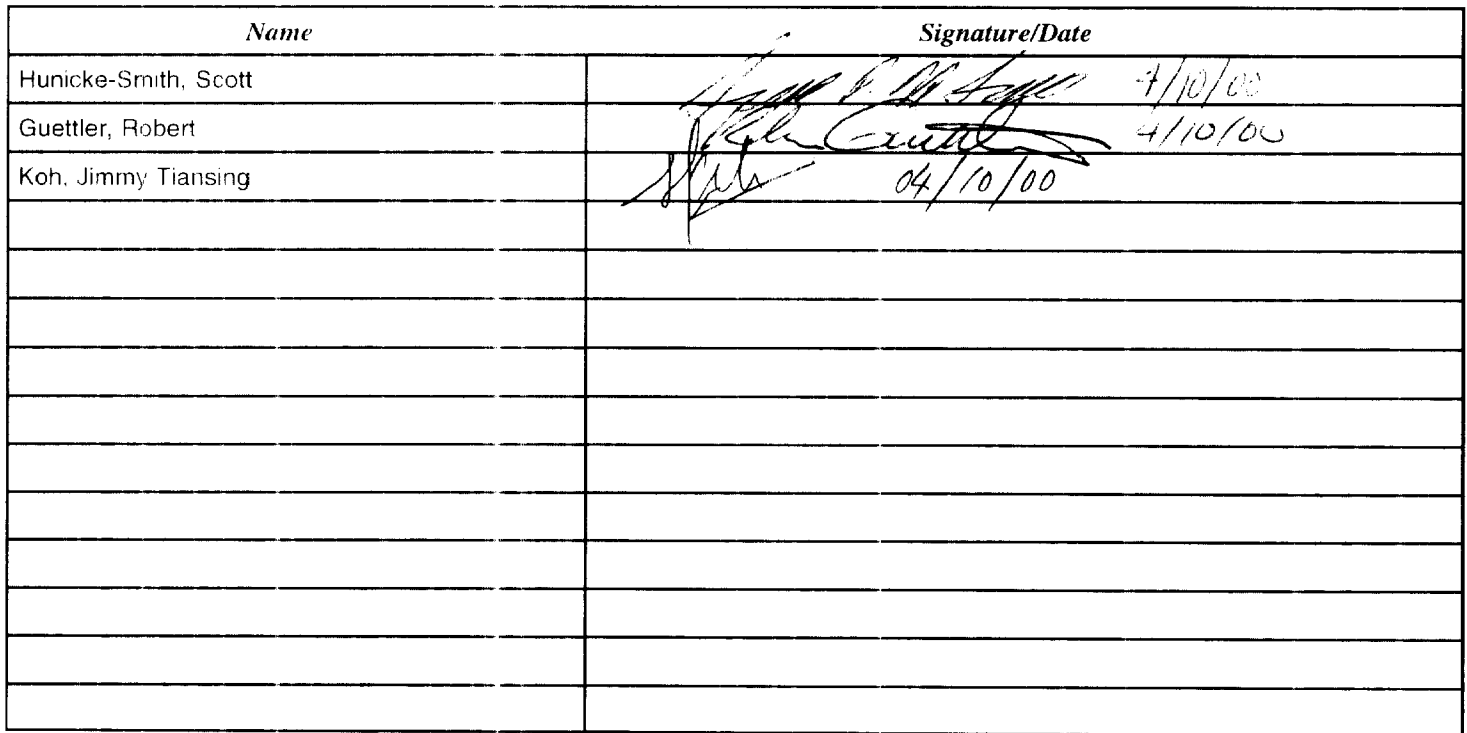 Name Signature/Date
Hunicke-Smith, Scott 4/10/00
Guettler, Robert Guettler 4/10/00
Koh, Jimmy Tiansing 04/10/00